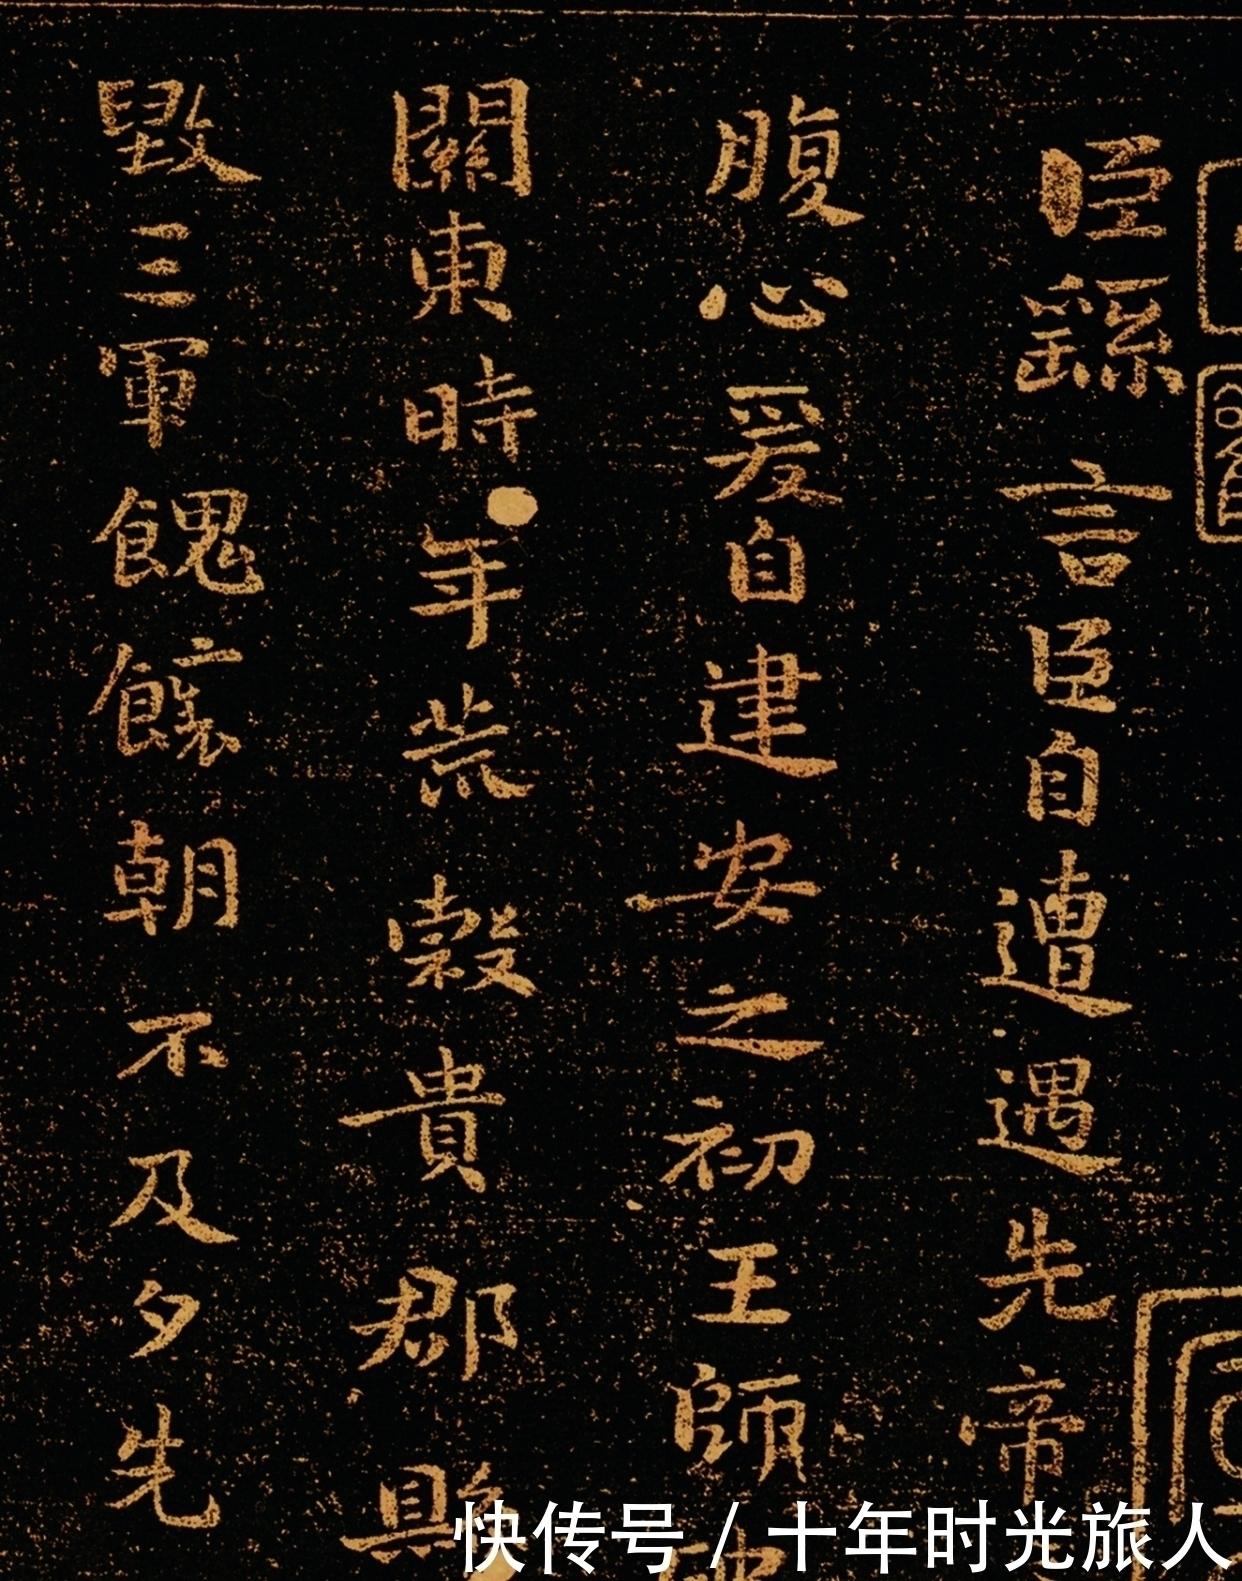 臣繇言臣自遭遇先帝
腹心爰自建安之初王師
關東時年荒穀貴郡縣
毀三軍餽饟朝不及夕先
快传号 / 十年时光旅人